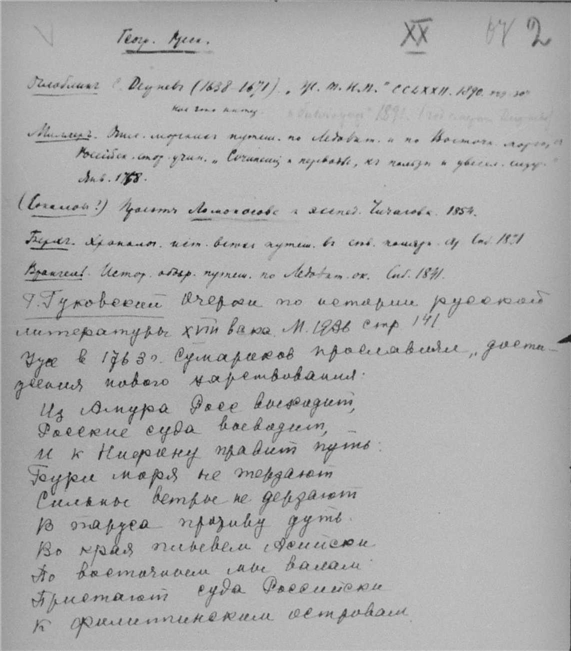 Геогр. Русск.
XX
2
Оглоблинъ С. Дежневъ (1638-1671) „Ж. М. Н. П." CCLXXII. 1890.
1891.
Миллеръ. путеш. по Ледовит. и по Восточн. морю, съ
Россійск. стор. учин. „Сочиненія и переводы, къ пользѣ и увесел. служ."
Янв. 1758.
(Соколовъ!) Проэктъ Ломоносова и экспед. Чичагова. 1854.
Берхъ. Хронолог. ист. всѣхъ путеш. въ сѣв. полярн. Спб. 1821
Врангель. Истор. обозр. путеш. по Ледовит. ок. Спб. 1841.
Г. Гуковский Очерки по истории русской
литературы XVIII века М. 1936 стр 141
Уже в 1763 г. Сумароков прославлял „дости-
жения нового царствования:
Из Амура Росс выходит,
Росские суда выводит,
И к Нифону правит путь:
Бури моря не терзают
Сильны ветры не дерзают
В паруса противу дуть.
Во края плывем Асийски
По восточным мы валам:
Пристают суда Российски
К филиппинским островам.